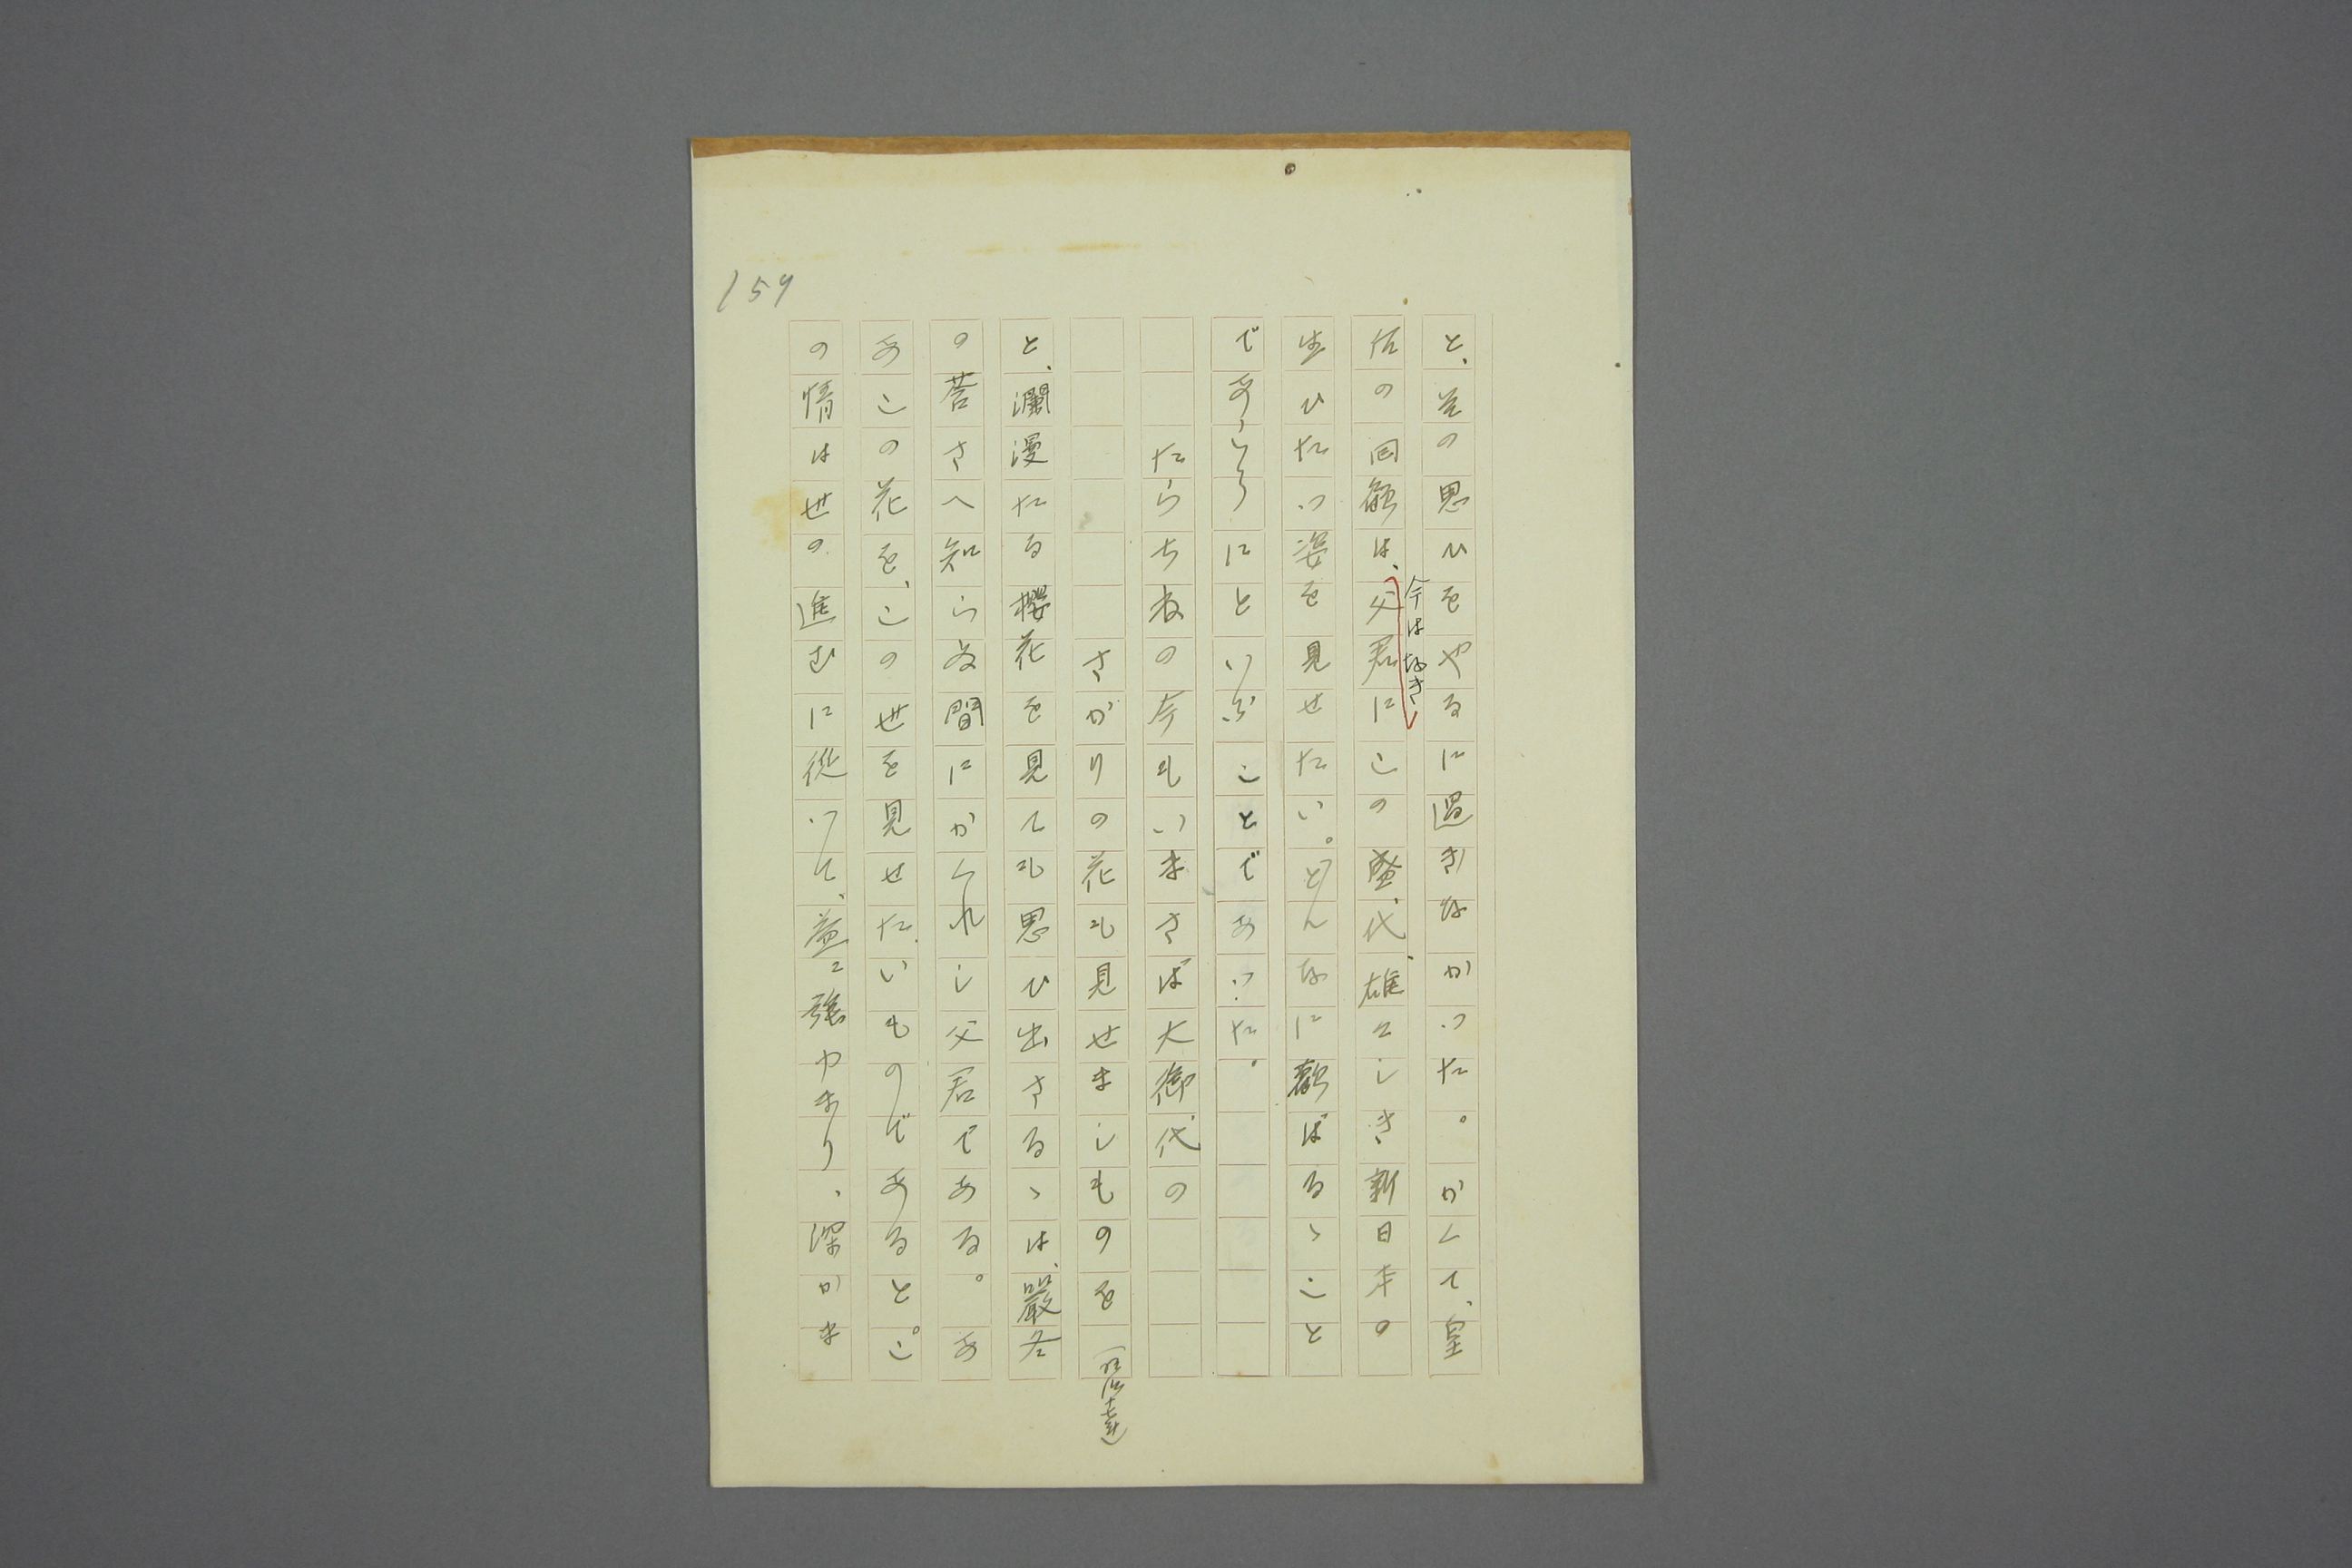 159
と、並の思ひをやるに過ぎなかつた。かくて、皇
后の回顧は、今はなき父君にこの盛代、雄々しき新日本の
生ひたつ姿を見せたい。どんなに歡ばるゝこと
であらうにといふことであつた。
たらちねの今もいまさば大御代の
さかりの花も見せましものを(明治十七年)
と、瀾漫たる櫻花を見ても思ひ出さるゝは、嚴冬
の苦さへ知らぬ間にかくれし父君である。あ
あこの花を、この世を見せたいものであると。こ
の情は世の進むに從つて、益々強やまり、深かま